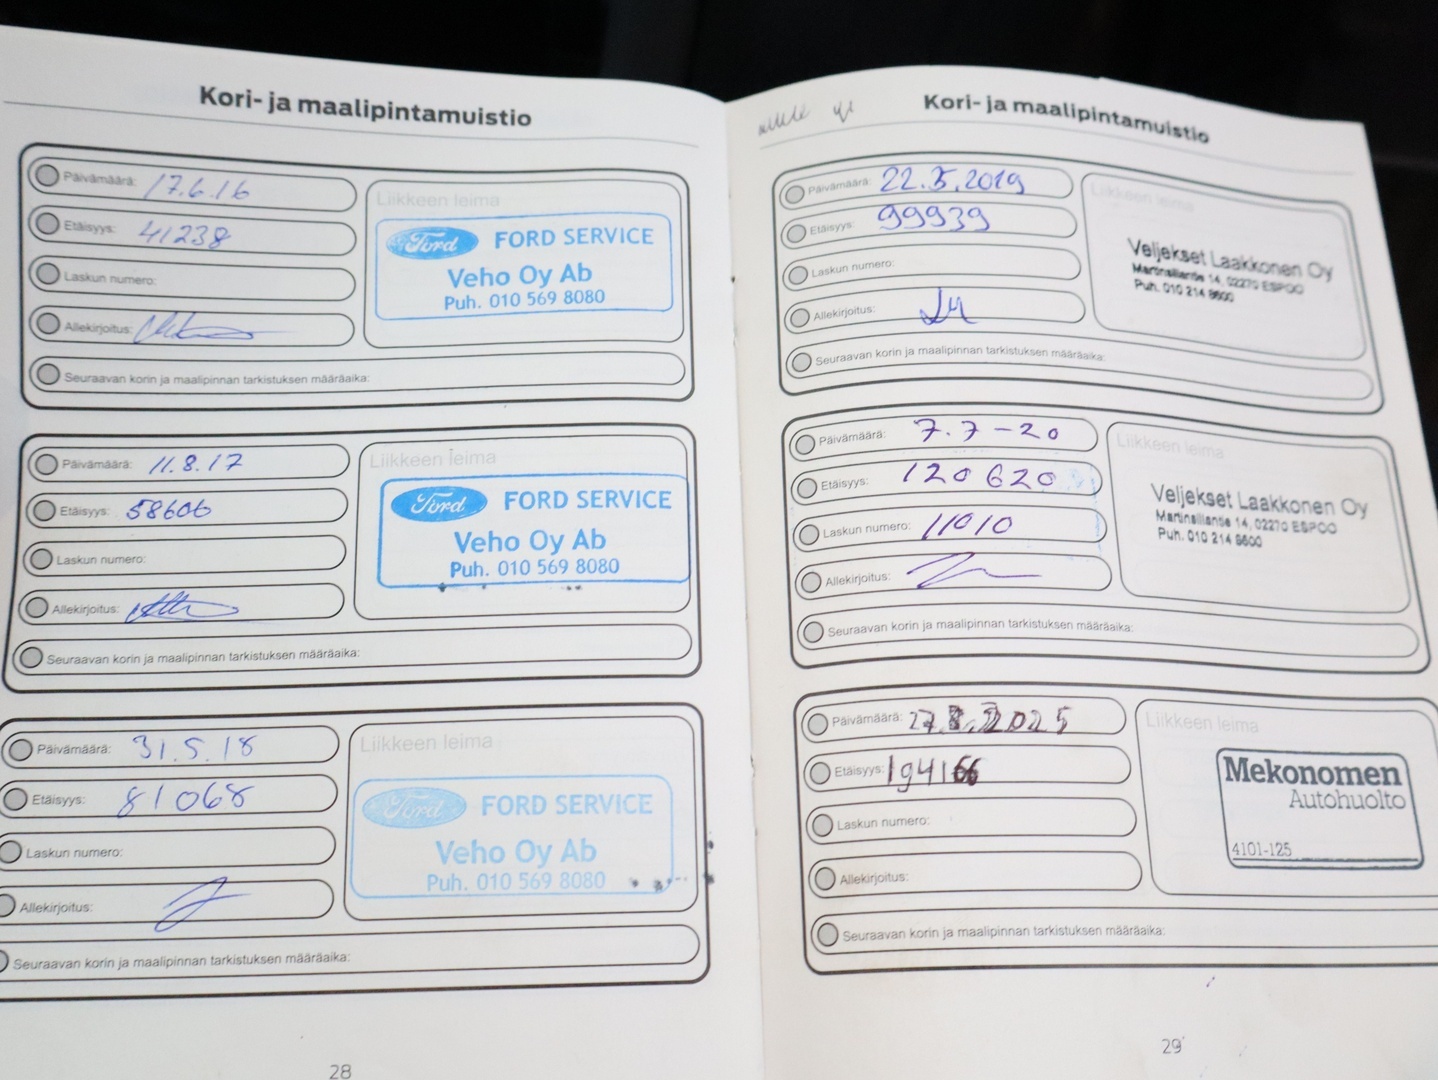 Kori- ja maalipintamuistio
Päivämäärä: 17.6.16
Etäisyys: 41238
Laskun numero:
Allekirjoitus:
Liikkeen leima
Ford FORD SERVICE
Veho Oy Ab
Puh. 010 569 8080
Seuraavan korin ja maalipinnan tarkistuksen määräaika:
Päivämäärä: 11.8.17
Etäisyys: 58606
Laskun numero:
Allekirjoitus:
Liikkeen leima
Ford FORD SERVICE
Veho Oy Ab
Puh. 010 569 8080
Seuraavan korin ja maalipinnan tarkistuksen määräaika:
Päivämäärä: 31.5.18
Etäisyys: 81068
Laskun numero:
Allekirjoitus:
Liikkeen leima
Ford FORD SERVICE
Veho Oy Ab
Puh. 010 569 8080
Seuraavan korin ja maalipinnan tarkistuksen määräaika:
28
Kori- ja maalipintamuistio
Päivämäärä: 22.5.2019
Etäisyys: 99939
Laskun numero:
Allekirjoitus:
Liikkeen leima
Veljekset Laakkonen Oy
Martinsillantie 14, 02270 ESPOO
Puh. 010 214 8600
Seuraavan korin ja maalipinnan tarkistuksen määräaika:
Päivämäärä: 7.7-20
Etäisyys: 120620
Laskun numero: 11010
Allekirjoitus:
Liikkeen leima
Veljekset Laakkonen Oy
Martinsillantie 14, 02270 ESPOO
Puh. 010 214 8600
Seuraavan korin ja maalipinnan tarkistuksen määräaika:
Päivämäärä:
Etäisyys: 194166
Laskun numero:
Allekirjoitus:
Liikkeen leima
Mekonomen
Autohuolto
4101-125
Seuraavan korin ja maalipinnan tarkistuksen määräaika:
29